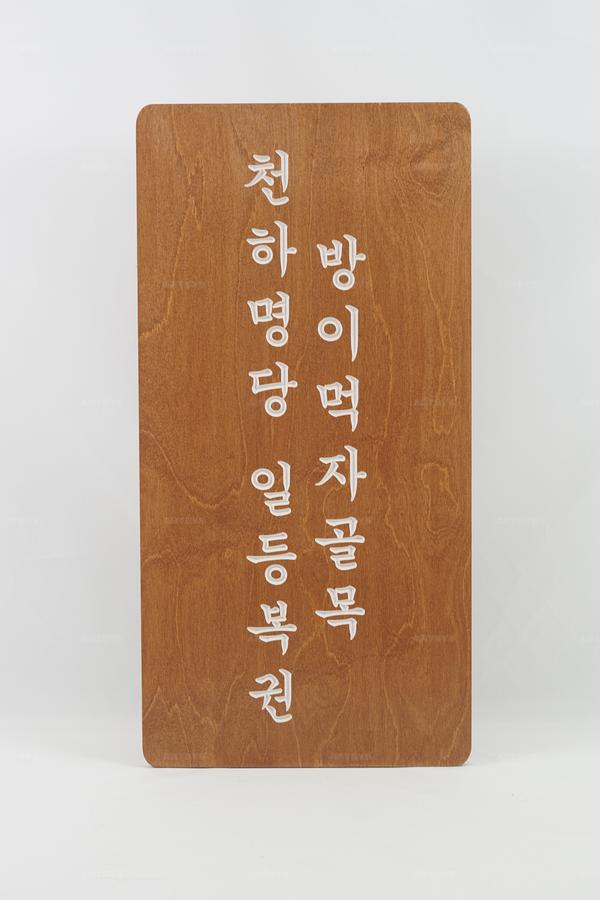 방이먹자골목
천하명당 일등복권